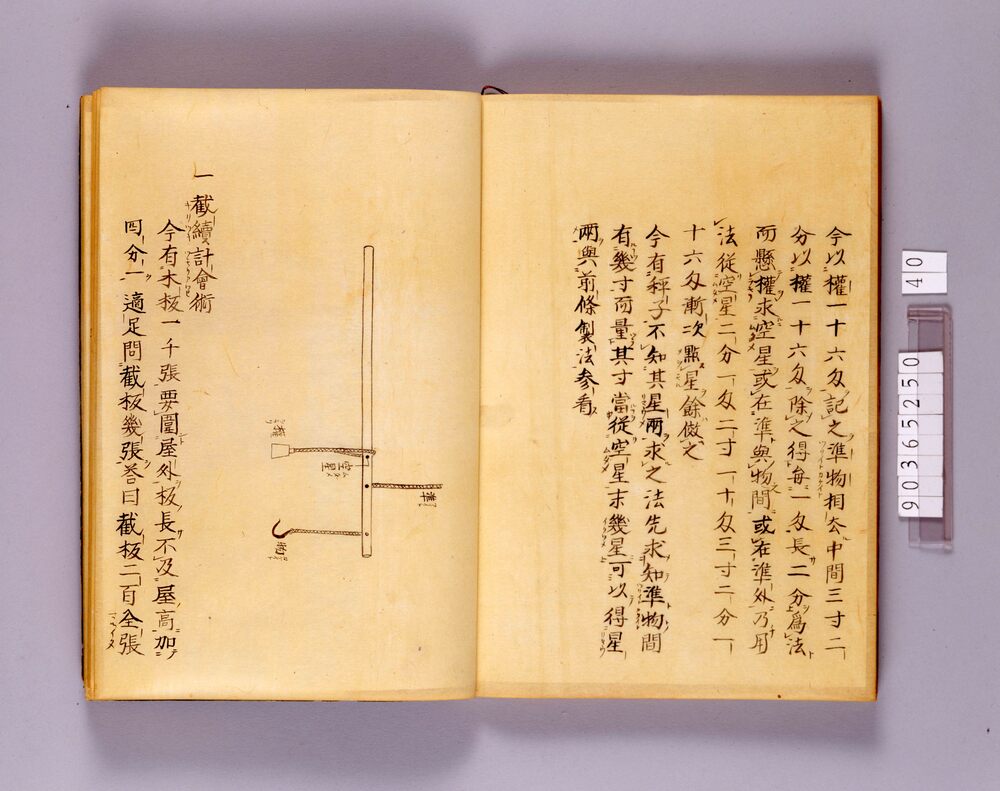 今以權一十六匁記之準物相去中間三寸二
分以權一十六匁除之得每一匁長二分爲法
而懸權求空星或在準與物間或在準外乃用
法從空星二分一匁二寸一十匁三寸二分一
十六匁漸次點星餘倣之
今有秤子不知其星兩求之法先求知準物間
有幾寸而量其寸當從空星末幾星可以得星
兩與前條製法参看
準
空星
權
物
一截續計會術
今有木板一千張要圍屋外板長不及屋高加
四分一適足問截板幾張答曰截板二百全張
40
9036525 0